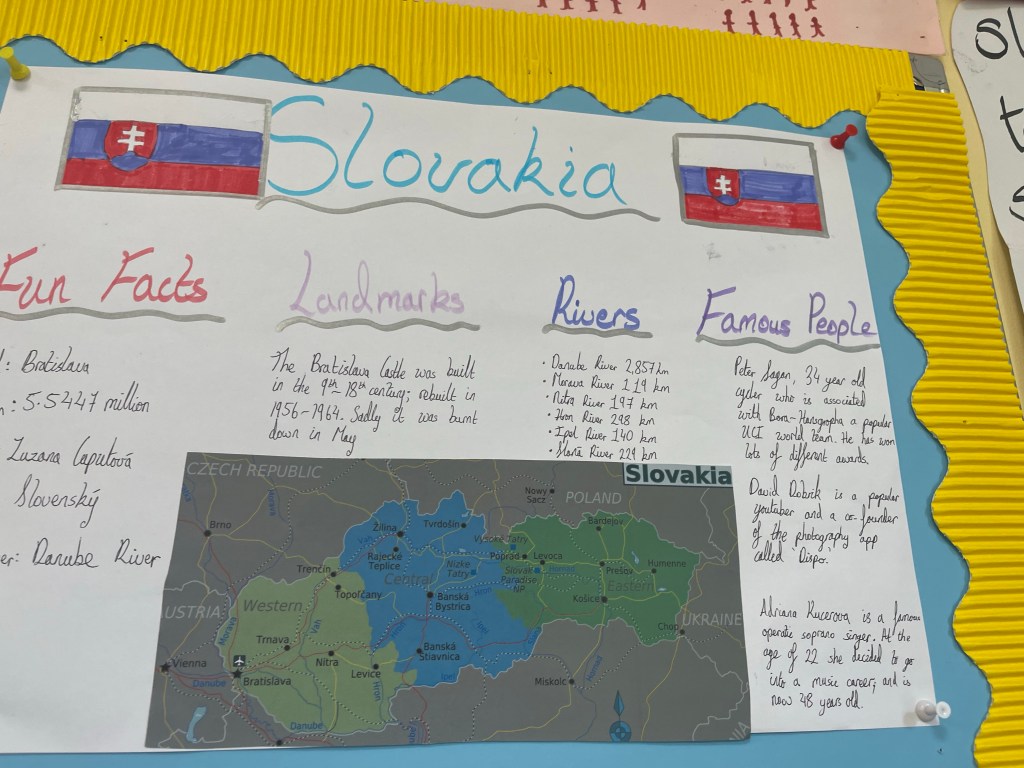 Slovakia
Fun Facts
: Bratislava
: 5.5447 million
Zuzana Čaputová
Slovenský
er: Danube River
Landmarks
The Bratislava Castle was built
in the 9th - 18th century; rebuilt in
1956-1964. Sadly it was burnt
down in May
Rivers
• Danube River 2,857km
• Morava River 119 km
• Nitra River 197 km
• Hron River 298 km
• Ipel River 140 km
• Slaná River 229 km
Famous People
Peter Sagan, 34 year old
cycler who is associated
with Bora-Hansgrophe a popular
UCI world team. He has won
lots of different awards.
David Dobrik is a popular
youtuber and a co-founder
of the photography app
called 'Dispo'.
Adriana Kucerova is a famous
operatic soprano singer. At the
age of 22 she decided to go
into a music career; and is
now 48 years old.
CZECH REPUBLIC
Slovakia
Nowy
Sącz
POLAND
Brno
Morava
Žilina
Tvrdošín
Bardejov
Vah
Vysoké Tatry
Rajecké
Teplice
Nízke
Tatry
Poprad
Levoca
Prešov
Humenne
Trenčín
Central
Slovak
Paradise
NP
Hornád
Eastern
Topoľčany
Hron
Banská
Bystrica
Košice
Western
USTRIA
Chop
UKRAINE
Morava
Vah
Ipel
Trnava
Banská
Štiavnica
Nitra
Levice
Vienna
Bratislava
Hron
Ipel
Miskolc
Danube
Danube